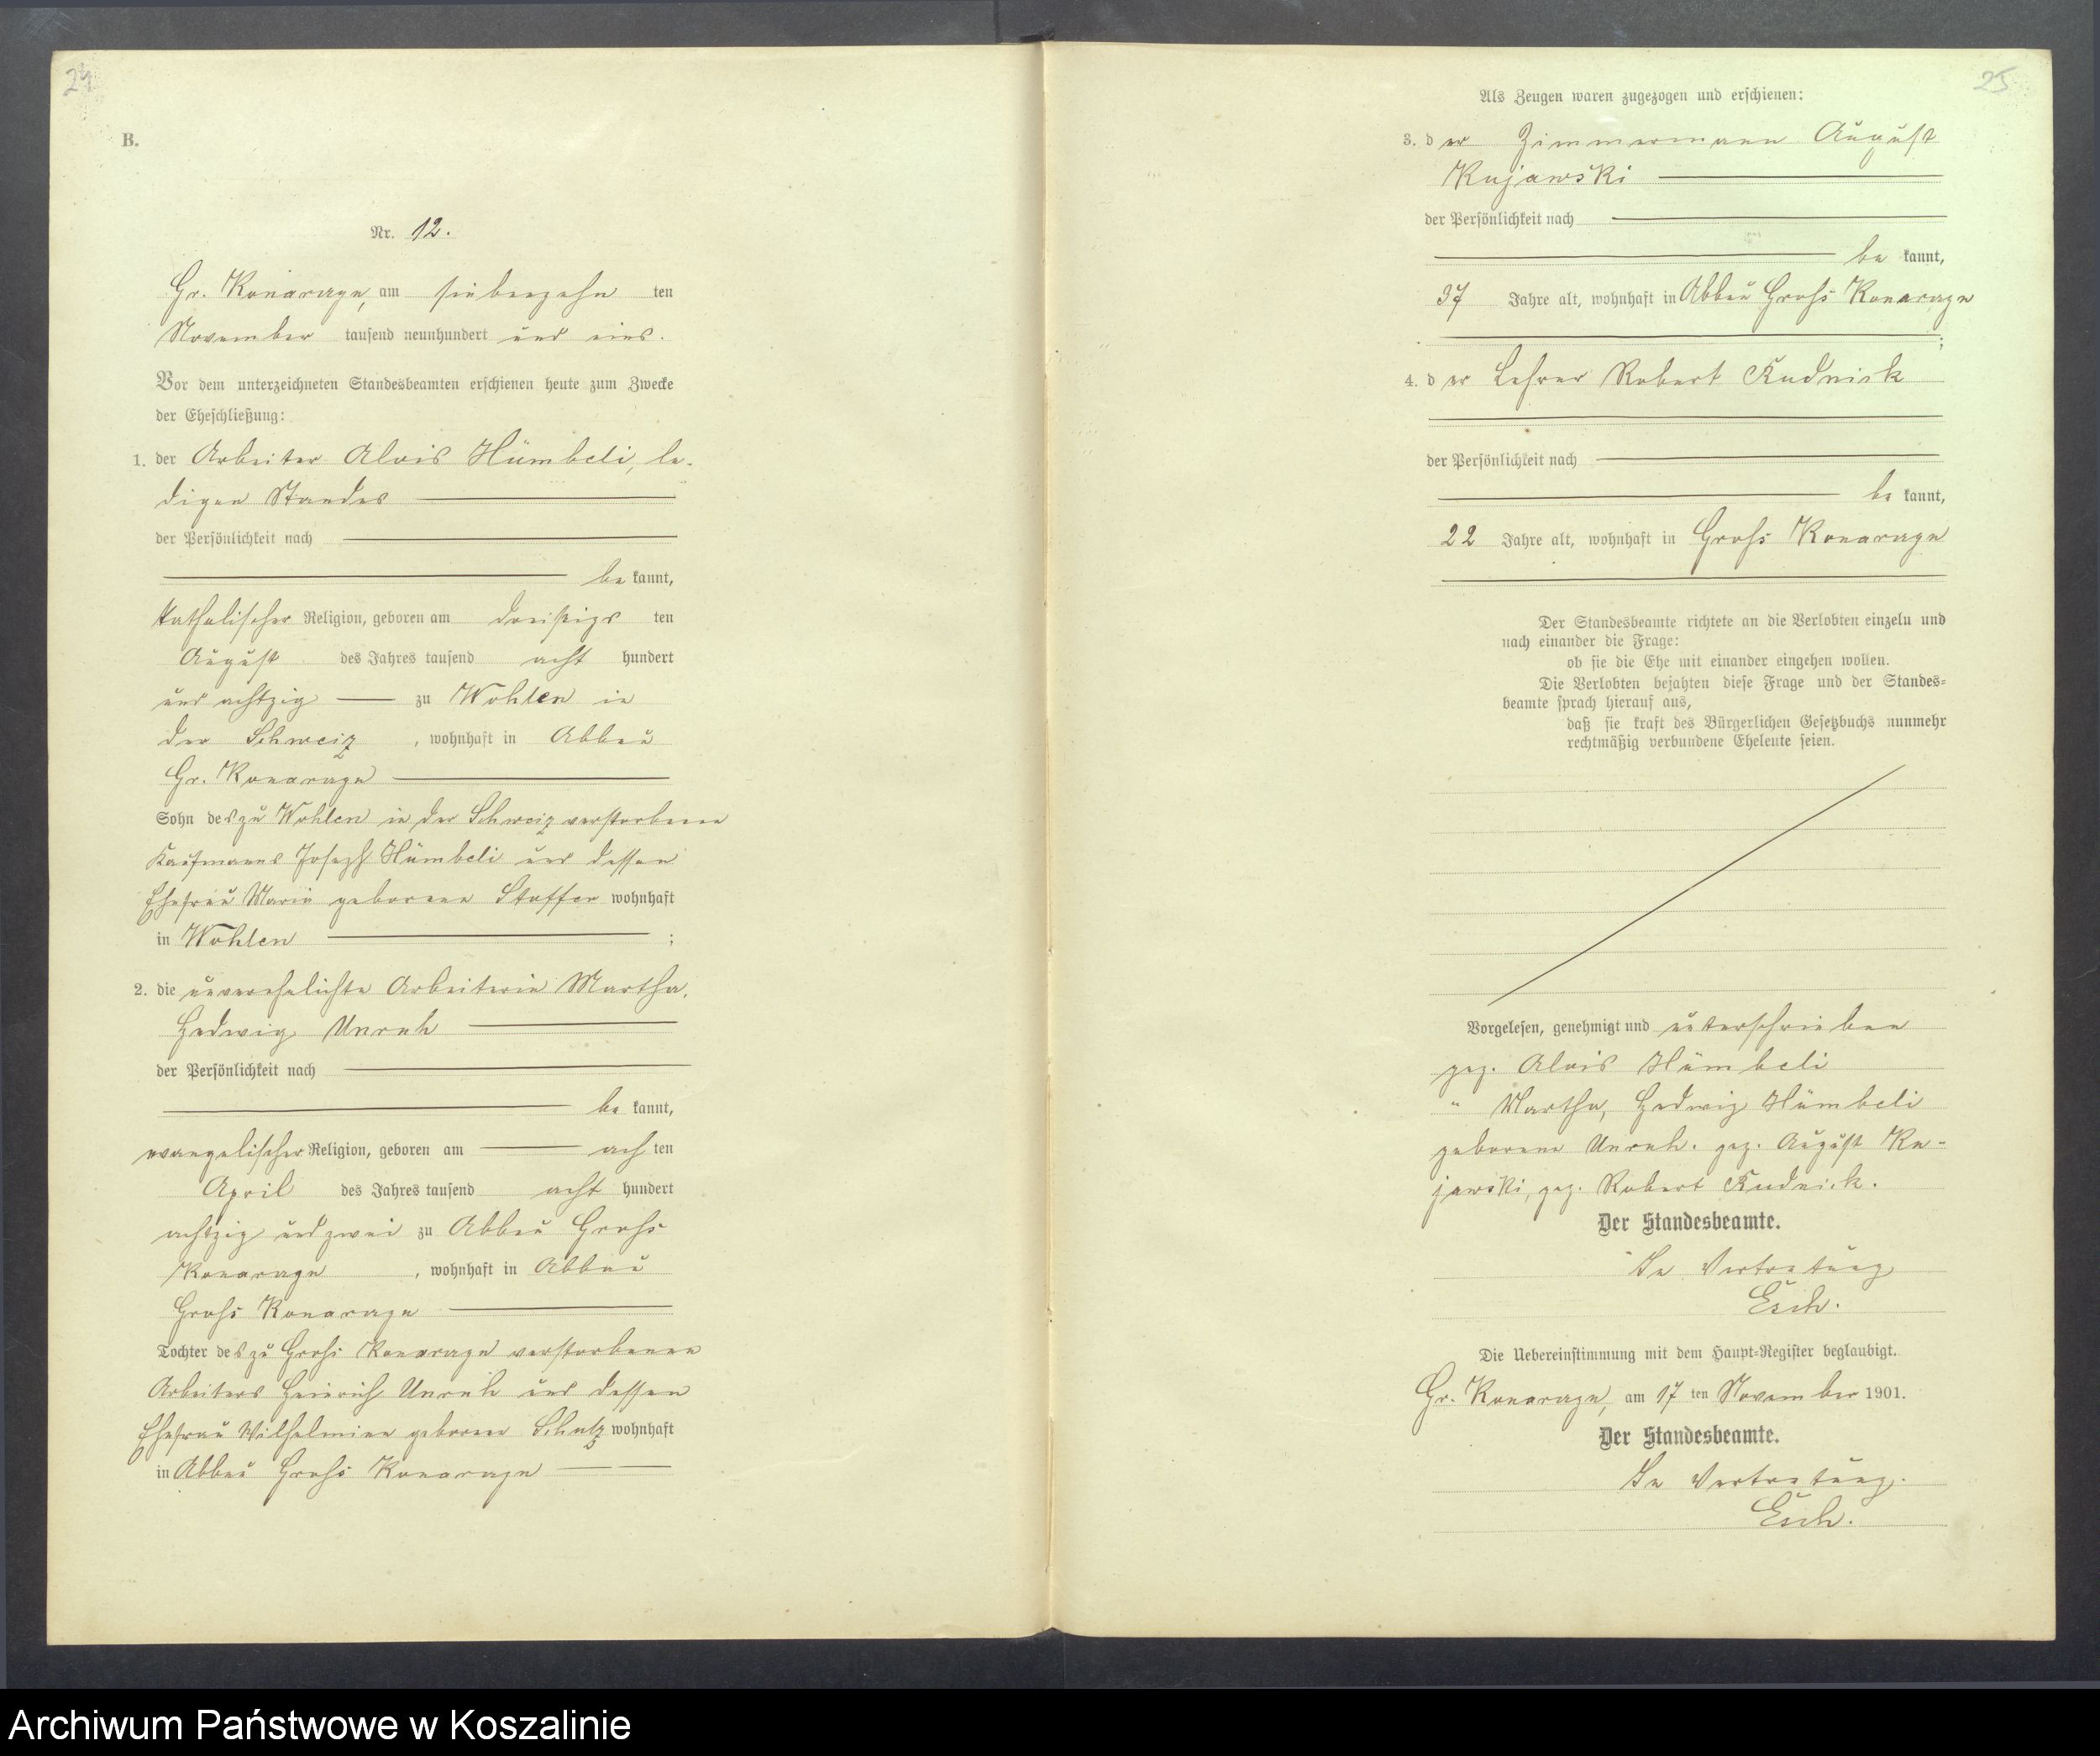 24
B.
Nr. 12.
Gr. Konarzyn, am siebenzehn ten
November tausend neunhundert und eins.
Vor dem unterzeichneten Standesbeamten erschienen heute zum Zwecke
der Eheschließung:
1. der Arbeiter Alois Hümbeli, le-
digen Standes
der Persönlichkeit nach
be kannt,
katholischer Religion, geboren am dreißigs ten
August des Jahres tausend acht hundert
und achtzig zu Wohlen in
der Schweiz, wohnhaft in Abbau
Gr. Konarzyn
Sohn des zu Wohlen in der Schweiz verstorbenen
Kaufmanns Joseph Hümbeli und dessen
Ehefrau Maria geborene Stoffer wohnhaft
in Wohlen ;
2. die unverehelichte Arbeiterin Martha,
Hedwig Unruh
der Persönlichkeit nach
be kannt,
evangelischer Religion, geboren am ach ten
April des Jahres tausend acht hundert
achtzig und zwei zu Abbau Groß
Konarzyn, wohnhaft in Abbau
Groß Konarzyn
Tochter des zu Groß Konarzyn verstorbenen
Arbeiters Heinrich Unruh und dessen
Ehefrau Wilhelmine geborene Schulz wohnhaft
in Abbau Groß Konarzyn
25
Als Zeugen waren zugezogen und erschienen:
3. d er Zimmermann August
Kujawski
der Persönlichkeit nach
be kannt,
37 Jahre alt, wohnhaft in Abbau Groß Konarzyn
;
4. d er Lehrer Robert Rudnick
der Persönlichkeit nach
be kannt,
22 Jahre alt, wohnhaft in Groß Konarzyn
Der Standesbeamte richtete an die Verlobten einzeln und
nach einander die Frage:
ob sie die Ehe mit einander eingehen wollen.
Die Verlobten bejahten diese Frage und der Standes=
beamte sprach hierauf aus,
daß sie kraft des Bürgerlichen Gesetzbuchs nunmehr
rechtmäßig verbundene Eheleute seien.
Vorgelesen, genehmigt und unterschrieben
gez. Alois Hümbeli
" Martha, Hedwig Hümbeli
geborene Unruh. gez. August Ku-
jawski, gez. Robert Rudnick.
Der Standesbeamte.
In Vertretung
Esch.
Die Uebereinstimmung mit dem Haupt=Register beglaubigt.
Gr. Konarzyn, am 17 ten November 1901.
Der Standesbeamte.
In Vertretung.
Esch.
Archiwum Państwowe w Koszalinie